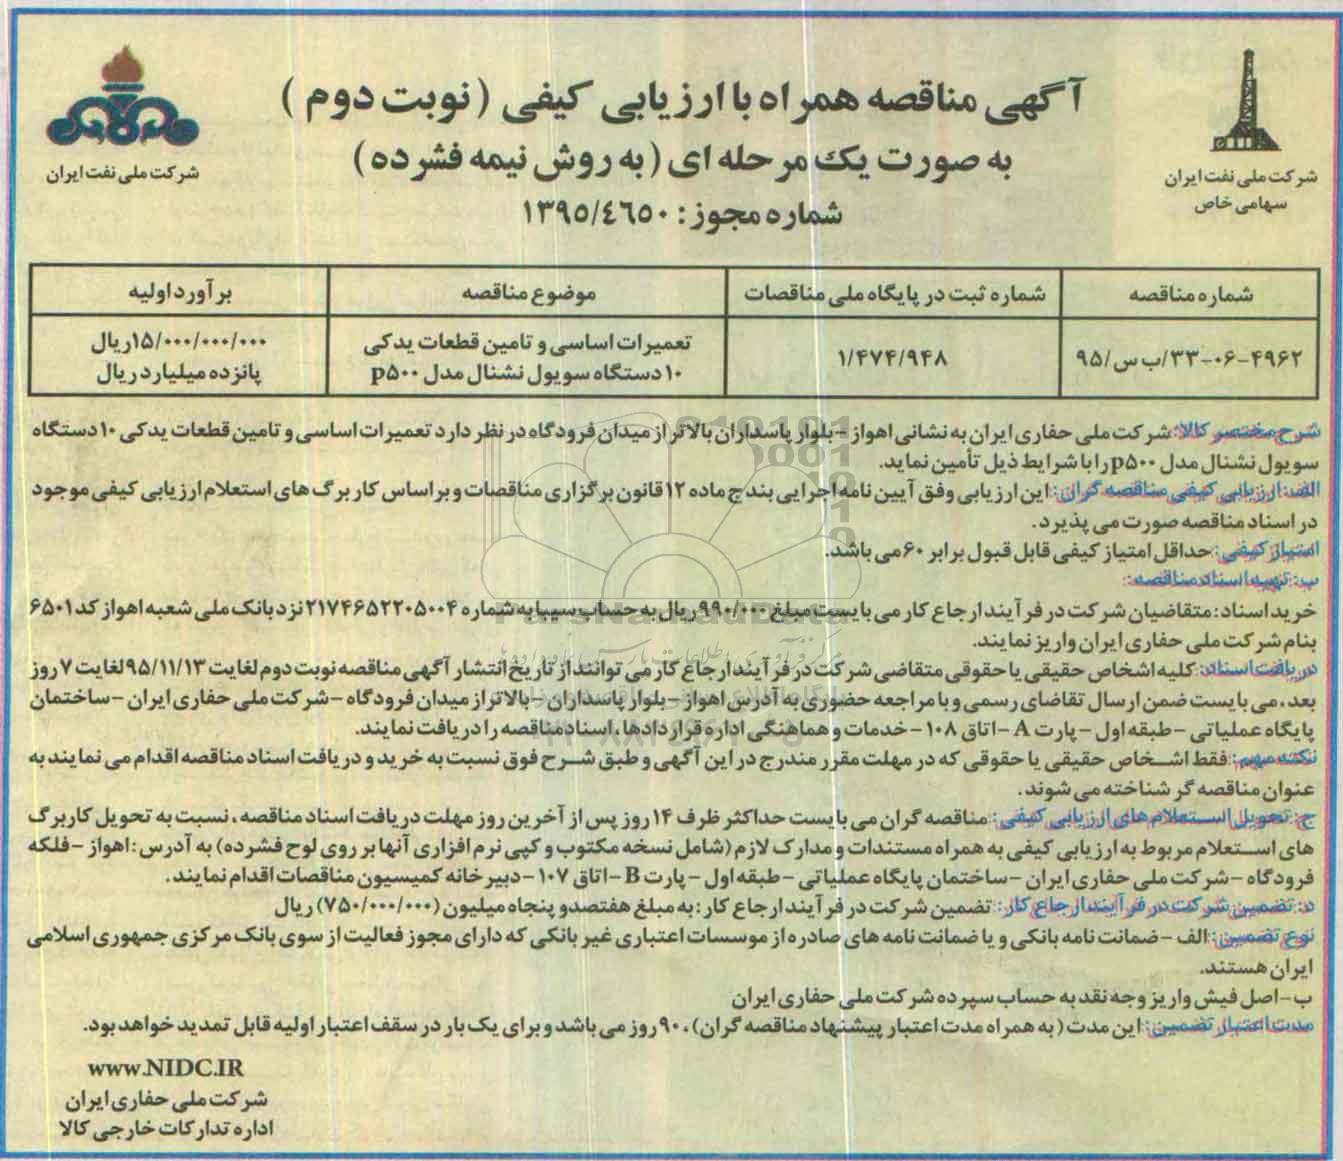 آگهی مناقصه همراه با ارزیابی کیفی (نوبت دوم)
به صورت یک مرحله ای (به روش نیمه فشرده)
شماره مجوز: ۱۳۹۵/٤٦٥۰
شرکت ملی نفت ایران
سهامی خاص
شرکت ملی نفت ایران
شماره مناقصه
شماره ثبت در پایگاه ملی مناقصات
موضوع مناقصه
برآورد اولیه
۳۳-۰۶-۴۹۶۲/ب س/۹۵
۱/۴۷۴/۹۴۸
تعمیرات اساسی و تامین قطعات یدکی
۱۰ دستگاه سویول نشنال مدل p۵۰۰
۱۵/۰۰۰/۰۰۰/۰۰۰ریال
پانزده میلیارد ریال
شرح مختصر کالا: شرکت ملی حفاری ایران به نشانی اهواز - بلوار پاسداران بالاتر از میدان فرودگاه در نظر دارد تعمیرات اساسی و تامین قطعات یدکی ۱۰ دستگاه
سویول نشنال مدل p۵۰۰ را با شرایط ذیل تأمین نماید.
الف: ارزیابی کیفی مناقصه گران: این ارزیابی وفق آیین نامه اجرایی بند ج ماده ۱۲ قانون برگزاری مناقصات و براساس کاربرگ های استعلام ارزیابی کیفی موجود
در اسناد مناقصه صورت می پذیرد.
امتیاز کیفی: حداقل امتیاز کیفی قابل قبول برابر ۶۰ می باشد.
ب: تهیه اسناد مناقصه:
خرید اسناد: متقاضیان شرکت در فرآیند ارجاع کار می بایست مبلغ ۹۹۰/۰۰۰ ریال به حساب سیبا به شماره ۲۱۷۴۶۵۲۲۰۵۰۰۴ نزد بانک ملی شعبه اهواز کد ۶۵۰۱
بنام شرکت ملی حفاری ایران واریز نمایند.
دریافت اسناد: کلیه اشخاص حقیقی یا حقوقی متقاضی شرکت در فرآیند ارجاع کار می توانند از تاریخ انتشار آگهی مناقصه نوبت دوم لغایت ۹۵/۱۱/۱۳ لغایت ۷ روز
بعد، می بایست ضمن ارسال تقاضای رسمی و با مراجعه حضوری به آدرس اهواز - بلوار پاسداران - بالاتر از میدان فرودگاه - شرکت ملی حفاری ایران - ساختمان
پایگاه عملیاتی - طبقه اول - پارت A - اتاق ۱۰۸ - خدمات و هماهنگی اداره قراردادها، اسناد مناقصه را دریافت نمایند.
نکته مهم: فقط اشخاص حقیقی یا حقوقی که در مهلت مقرر مندرج در این آگهی و طبق شرح فوق نسبت به خرید و دریافت اسناد مناقصه اقدام می نمایند به
عنوان مناقصه گر شناخته می شوند.
ج: تحویل استعلام های ارزیابی کیفی: مناقصه گران می بایست حداکثر ظرف ۱۴ روز پس از آخرین روز مهلت دریافت اسناد مناقصه، نسبت به تحویل کاربرگ
های استعلام مربوط به ارزیابی کیفی به همراه مستندات و مدارک لازم (شامل نسخه مکتوب و کپی نرم افزاری آنها بر روی لوح فشرده) به آدرس: اهواز - فلکه
فرودگاه - شرکت ملی حفاری ایران - ساختمان پایگاه عملیاتی - طبقه اول - پارت B - اتاق ۱۰۷ - دبیرخانه کمیسیون مناقصات اقدام نمایند.
د: تضمین شرکت در فرآیند ارجاع کار: تضمین شرکت در فرآیند ارجاع کار: به مبلغ هفتصد و پنجاه میلیون (۷۵۰/۰۰۰/۰۰۰) ریال
نوع تضمین: الف - ضمانت نامه بانکی و یا ضمانت نامه های صادره از موسسات اعتباری غیر بانکی که دارای مجوز فعالیت از سوی بانک مرکزی جمهوری اسلامی
ایران هستند.
ب - اصل فیش واریز وجه نقد به حساب سپرده شرکت ملی حفاری ایران
مدت اعتبار تضمین: این مدت (به همراه مدت اعتبار پیشنهاد مناقصه گران)، ۹۰ روز می باشد و برای یک بار در سقف اعتبار اولیه قابل تمدید خواهد بود.
www.NIDC.IR
شرکت ملی حفاری ایران
اداره تدارکات خارجی کالا